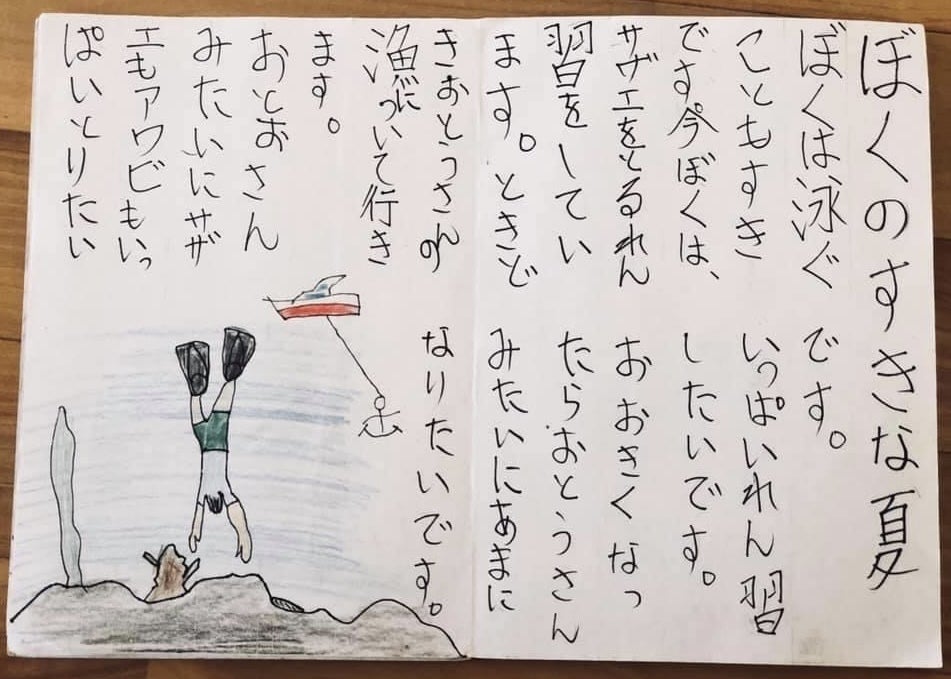 ぼくのすきな夏
ぼくは泳ぐ
こともすき
です今ぼくは、
サザエをとるれん
習をしてい
ます。ときど
きおとうさんの
漁について行き
ます。
おとおさん
みたいにサザ
エもアワビもいっ
ぱいとりたい
です。
いっぱいれん習
したいです。
おおきくなっ
たらおとうさん
みたいにあまに
なりたいです。